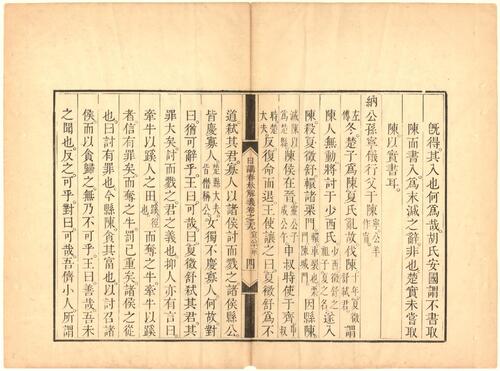 既得其入也何為哉胡氏安國謂不書取
陳而書入為末減之辭非也楚實未嘗取
陳以實書耳
納公孫寧儀行父于陳寧公羊作甯
左傳冬楚子為陳夏氏亂故伐陳十年夏徵舒弒君謂
陳人無動將討于少西氏少西徵舒之祖子夏之名遂入
陳殺夏徵舒轘諸栗門轘車裂也栗門陳城門因縣陳
滅陳以為楚縣陳侯在晉靈公子成公午申叔時使于齊叔時楚大夫
反復命而退王使讓之曰夏徵舒為不
日講春秋解義卷二十九 宣公十一年 四
道弒其君寡人以諸侯討而戮之諸侯縣公
皆慶寡人楚縣大夫皆僭稱公女獨不慶寡人何故對
曰猶可辭乎王曰可哉曰夏徵舒弒其君其
罪大矣討而戮之君之義也抑人亦有言曰
牽牛以蹊人之田蹊徑也而奪之牛牽牛以蹊
者信有罪矣而奪之牛罰已重矣諸侯之從
也曰討有罪也今縣陳貪其富也以討召諸
侯而以貪歸之無乃不可乎王曰善哉吾未
之聞也反之可乎對曰可哉吾儕小人所謂